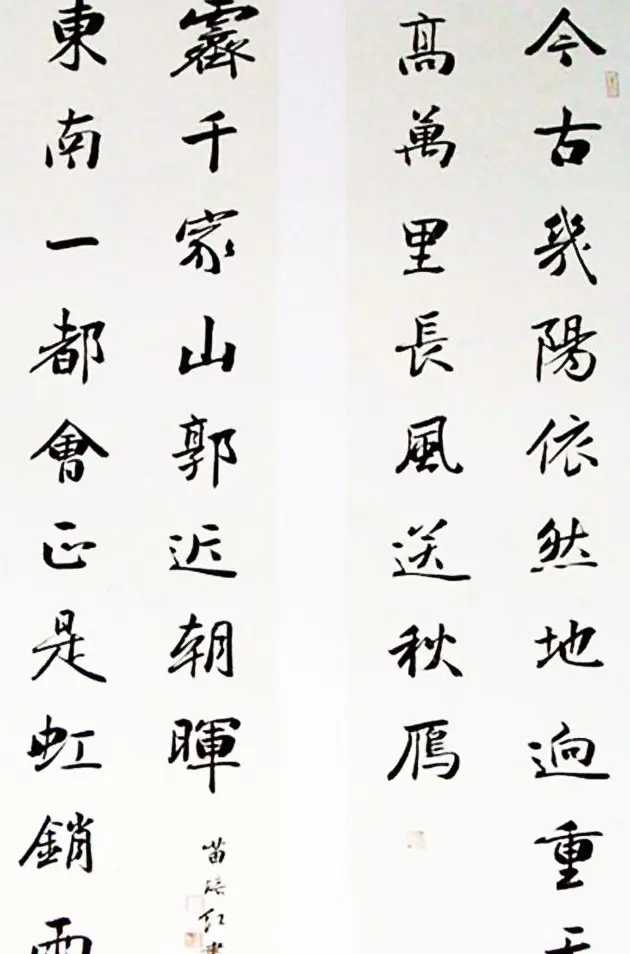 今古幾陽依然地迥重天
高萬里長風送秋鴈
東南一都會正是虹銷雨
霽千家山郭近朝暉
苗培红書